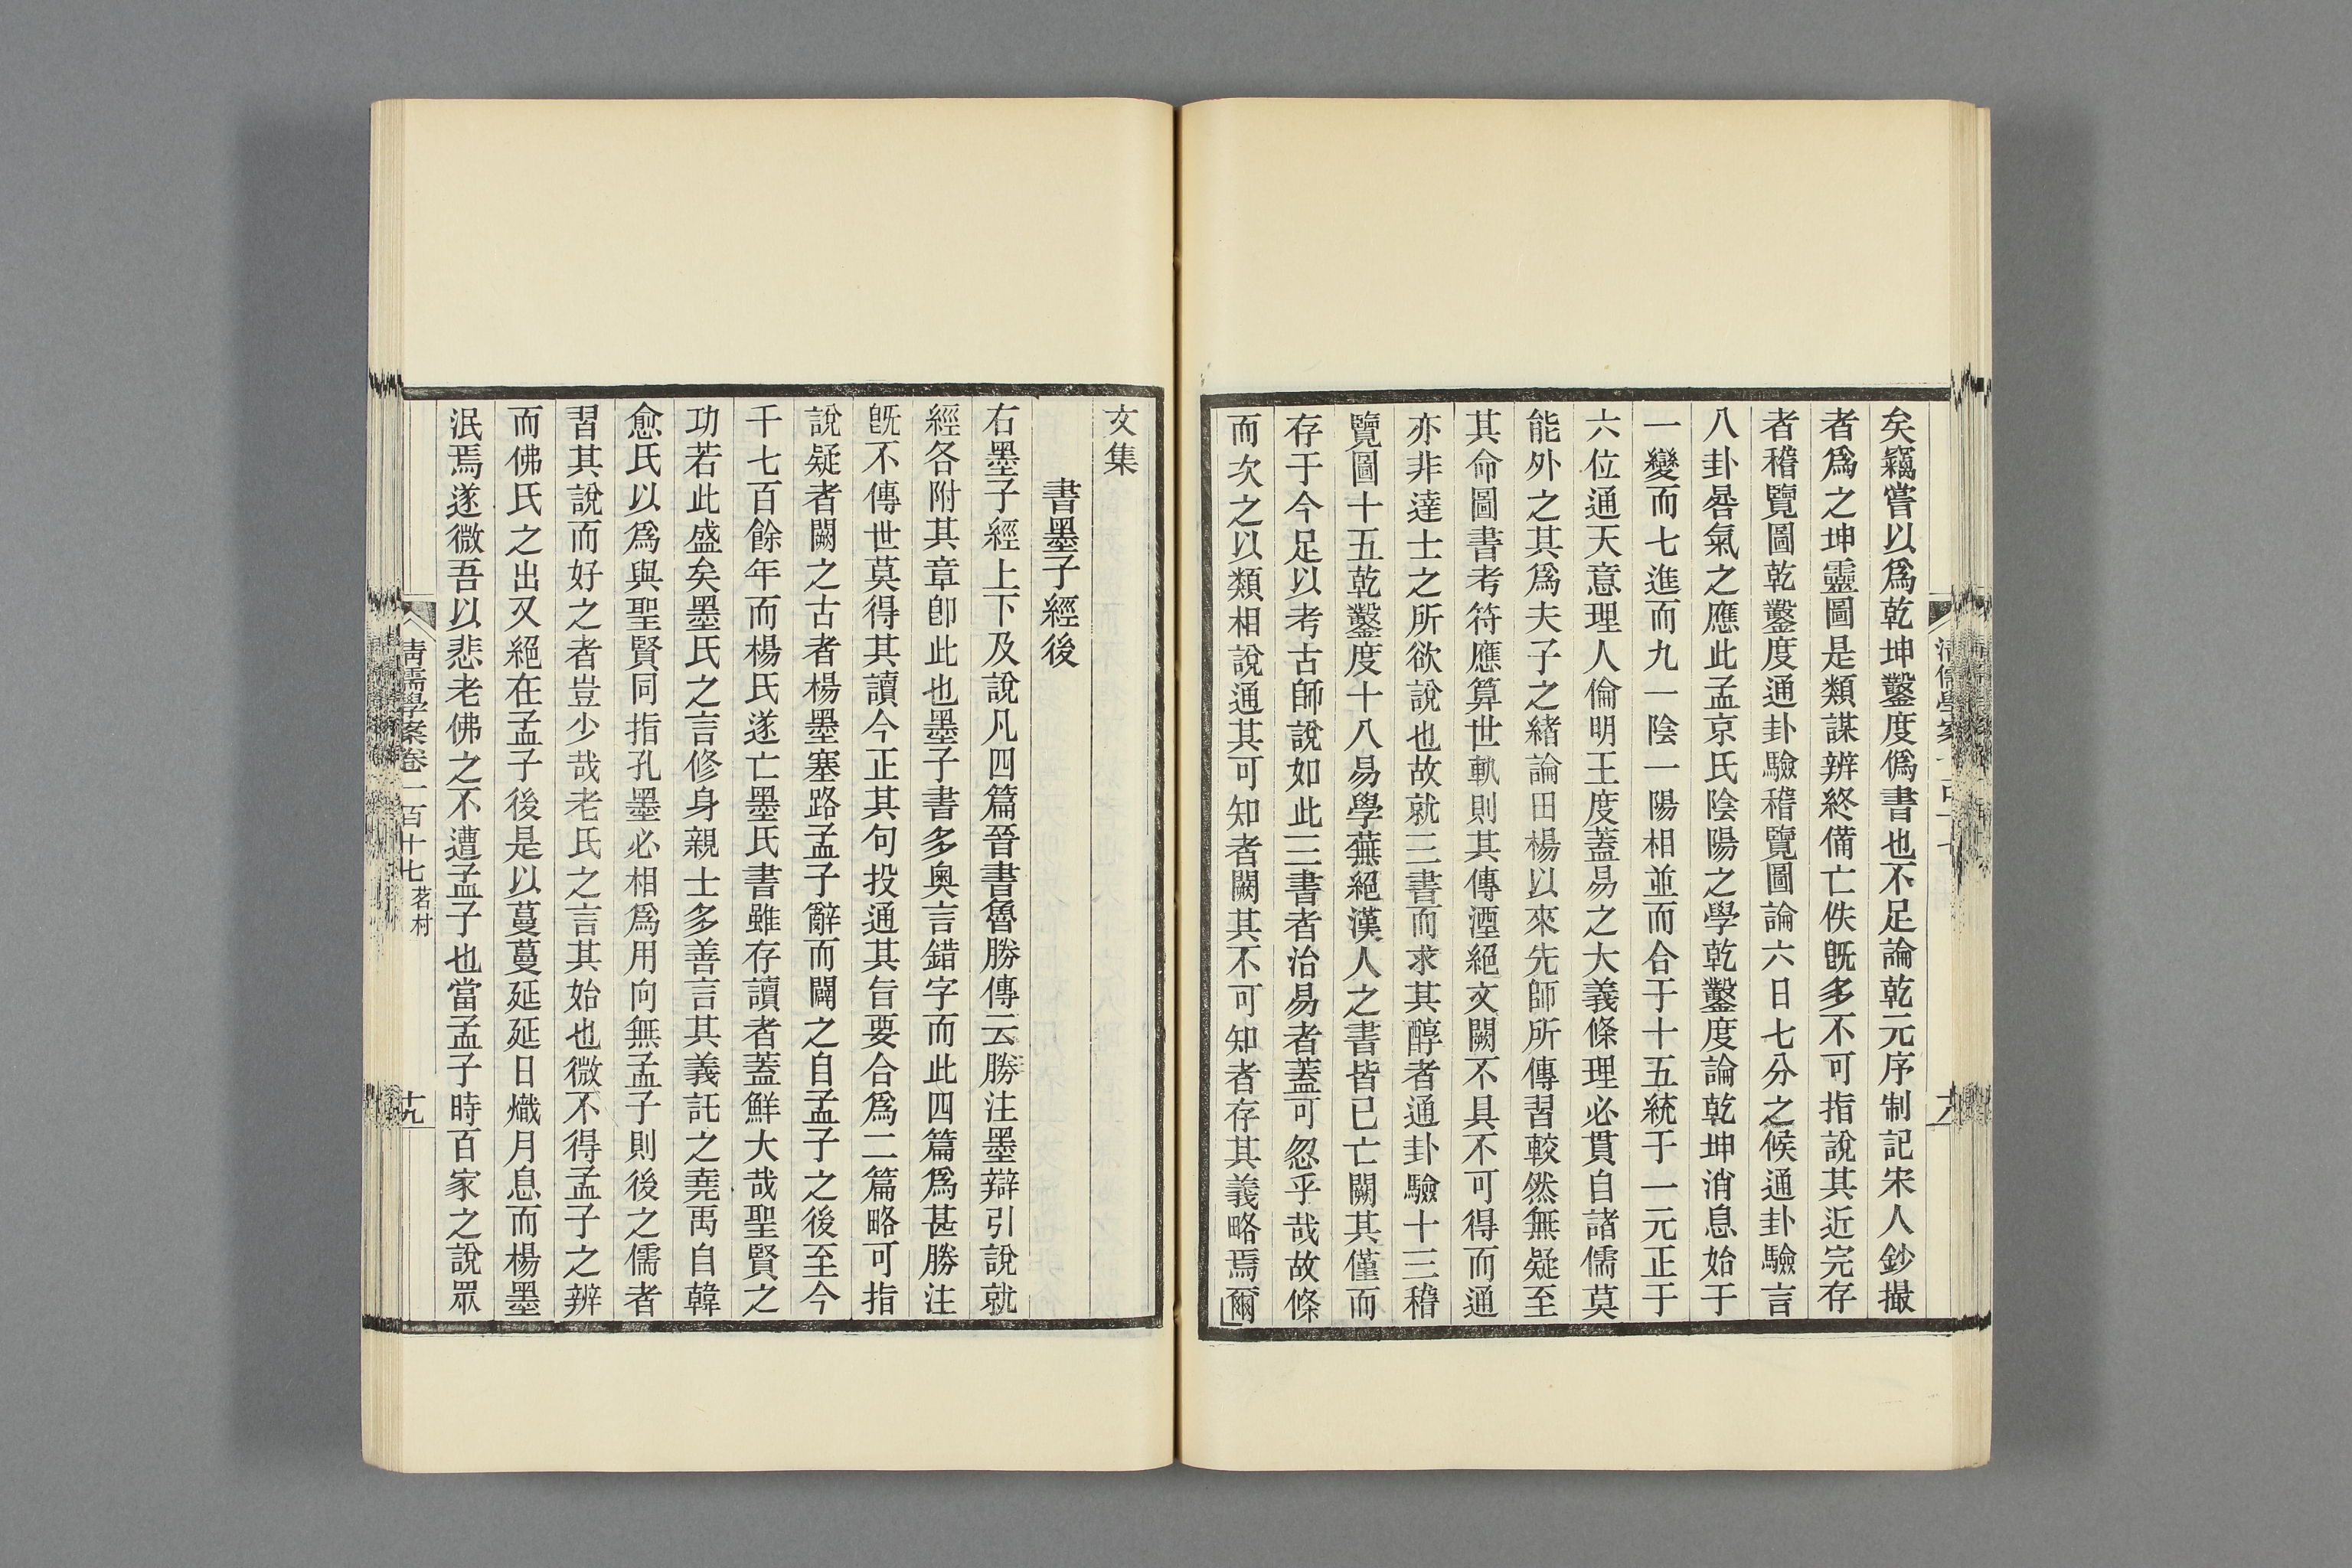 矣竊嘗以爲乾坤鑿度僞書也不足論乾元序制記宋人鈔撮
者爲之坤靈圖是類謀辨終備亡佚旣多不可指說其近完存
者稽覽圖乾鑿度通卦驗稽覽圖論六日七分之候通卦驗言
八卦晷氣之應此孟京氏陰陽之學乾鑿度論乾坤消息始于
一變而七進而九一陰一陽相並而合于十五統于一元正于
六位通天意理人倫明王度蓋易之大義條理必貫自諸儒莫
能外之其爲夫子之緖論田楊以來先師所傳習較然無疑至
其命圖書考符應算世軌則其傳湮絕文闕不具不可得而通
亦非達士之所欲說也故就三書而求其醇者通卦驗十三稽
覽圖十五乾鑿度十八易學蕪絕漢人之書皆已亡闕其僅而
存于今足以考古師說如此三書者治易者蓋可忽乎哉故條
而次之以類相說通其可知者闕其不可知者存其義略焉爾
文集
書墨子經後
右墨子經上下及說凡四篇晉書魯勝傳云勝注墨辯引說就
經各附其章卽此也墨子書多奧言錯字而此四篇爲甚勝注
旣不傳世莫得其讀今正其句投通其旨要合爲二篇略可指
說疑者闕之古者楊墨塞路孟子辭而闢之自孟子之後至今
千七百餘年而楊氏遂亡墨氏書雖存讀者蓋鮮大哉聖賢之
功若此盛矣墨氏之言修身親士多善言其義託之堯禹自韓
愈氏以爲與聖賢同指孔墨必相爲用向無孟子則後之儒者
習其說而好之者豈少哉老氏之言其始也微不得孟子之辨
而佛氏之出又絕在孟子後是以蔓蔓延延日熾月息而楊墨
泯焉遂微吾以悲老佛之不遭孟子也當孟子時百家之說眾
清儒學案卷一百十七 茗村
十九